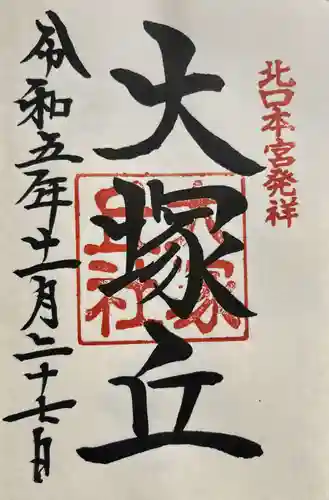 北口本宮発祥
大塚丘
大塚
丘社
令和五年十一月二十七日